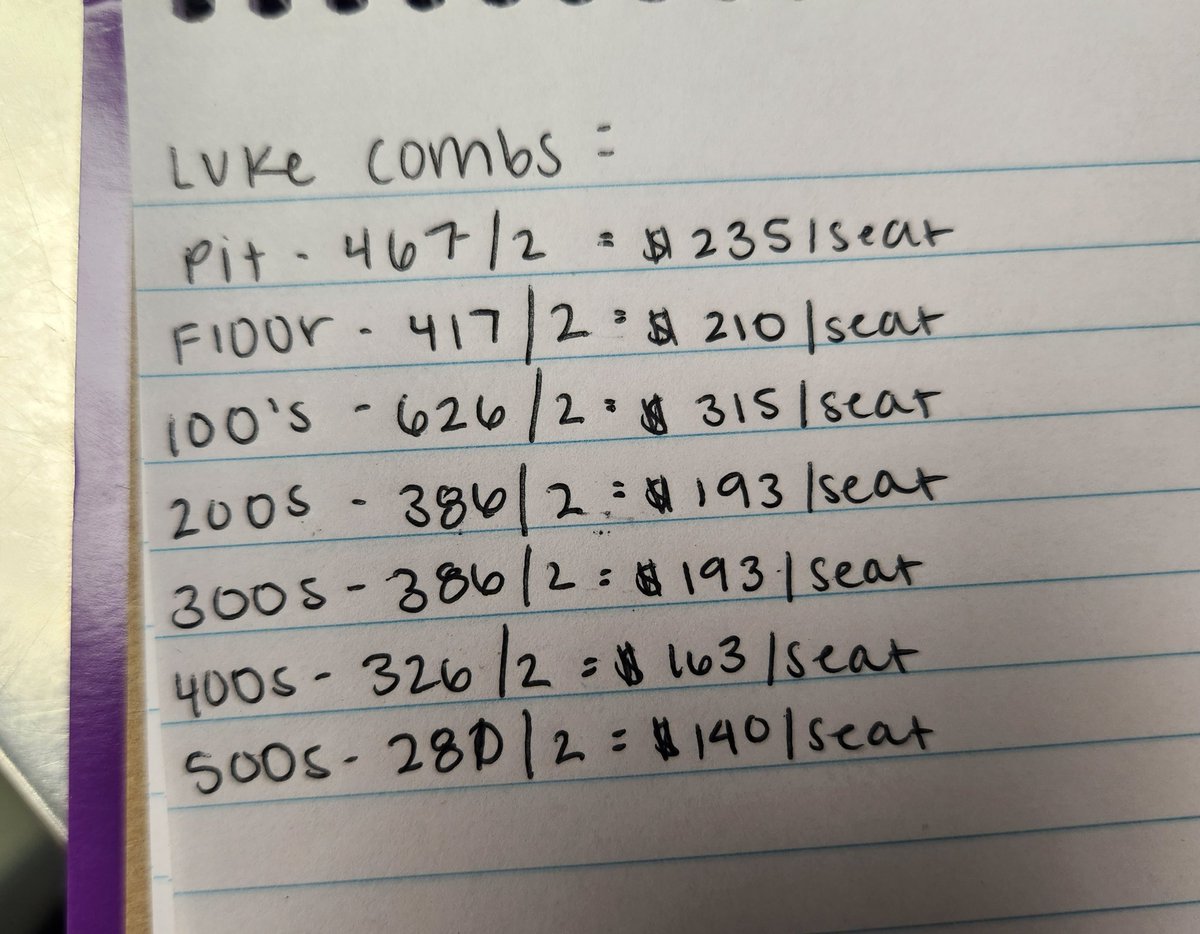 LUKE COMBS :
Pit - 467/2 = $ 235/seat
Floor - 417/2 = $ 210/seat
100's - 626/2 = $ 315/seat
200s - 386/2 = $ 193/seat
300s - 386/2 = $ 193/seat
400s - 326/2 = $ 163/seat
500s - 280/2 = $ 140/seat